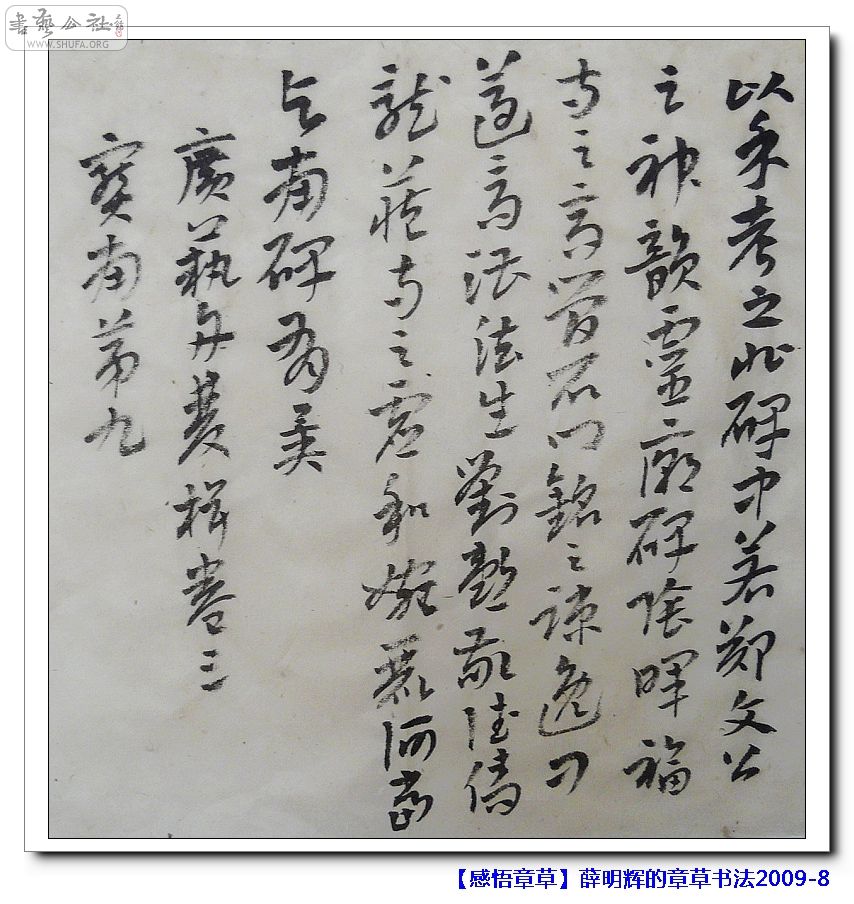 書藝公社
WWW.SHUFA.ORG
以余考之北碑中若鄭文公
之神韻靈廟碑陰暉福
寺之高簡石門銘之疎逸刁
遵高湛法生劉懿敬儁
龍藏寺之虛和婉麗何嘗
与南碑有異
廣藝舟雙楫卷三
寶南第九
【感悟章草】薛明辉的章草书法2009-8